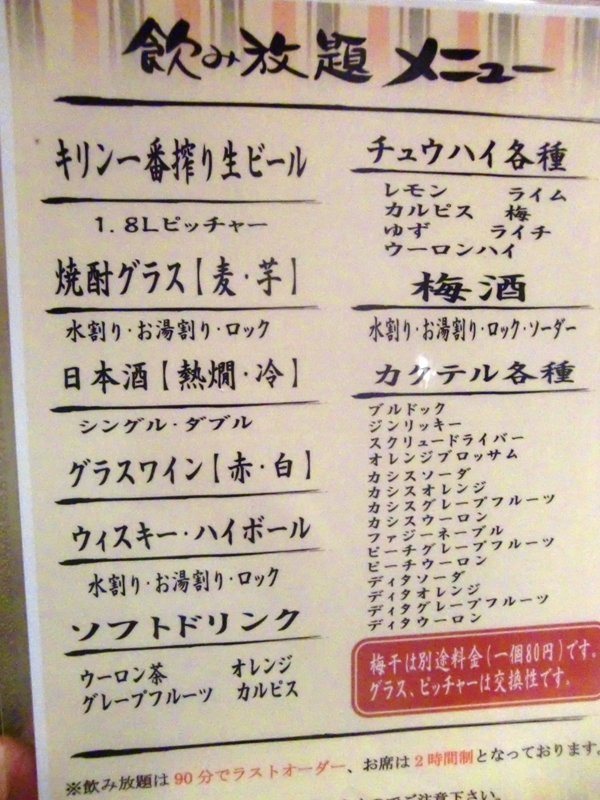 飲み放題 メニュー
キリン一番搾り生ビール
1.8Lピッチャー
焼酎グラス【麦・芋】
水割り・お湯割り・ロック
日本酒【熱燗・冷】
シングル・ダブル
グラスワイン【赤・白】
ウィスキー・ハイボール
水割り・お湯割り・ロック
ソフトドリンク
ウーロン茶 オレンジ
グレープフルーツ カルピス
チュウハイ各種
レモン ライム
カルピス 梅
ゆず ライチ
ウーロンハイ
梅酒
水割り・お湯割り・ロック・ソーダー
カクテル各種
ブルドック
ジンリッキー
スクリュードライバー
オレンジブロッサム
カシスソーダ
カシスオレンジ
カシスグレープフルーツ
カシスウーロン
ファジーネーブル
ピーチグレープフルーツ
ピーチウーロン
ディタソーダ
ディタオレンジ
ディタグレープフルーツ
ディタウーロン
梅干は別途料金(一個80円)です。
グラス、ピッチャーは交換性です。
※飲み放題は90分でラストオーダー、お席は2時間制となっております。
のでご注意下さい。